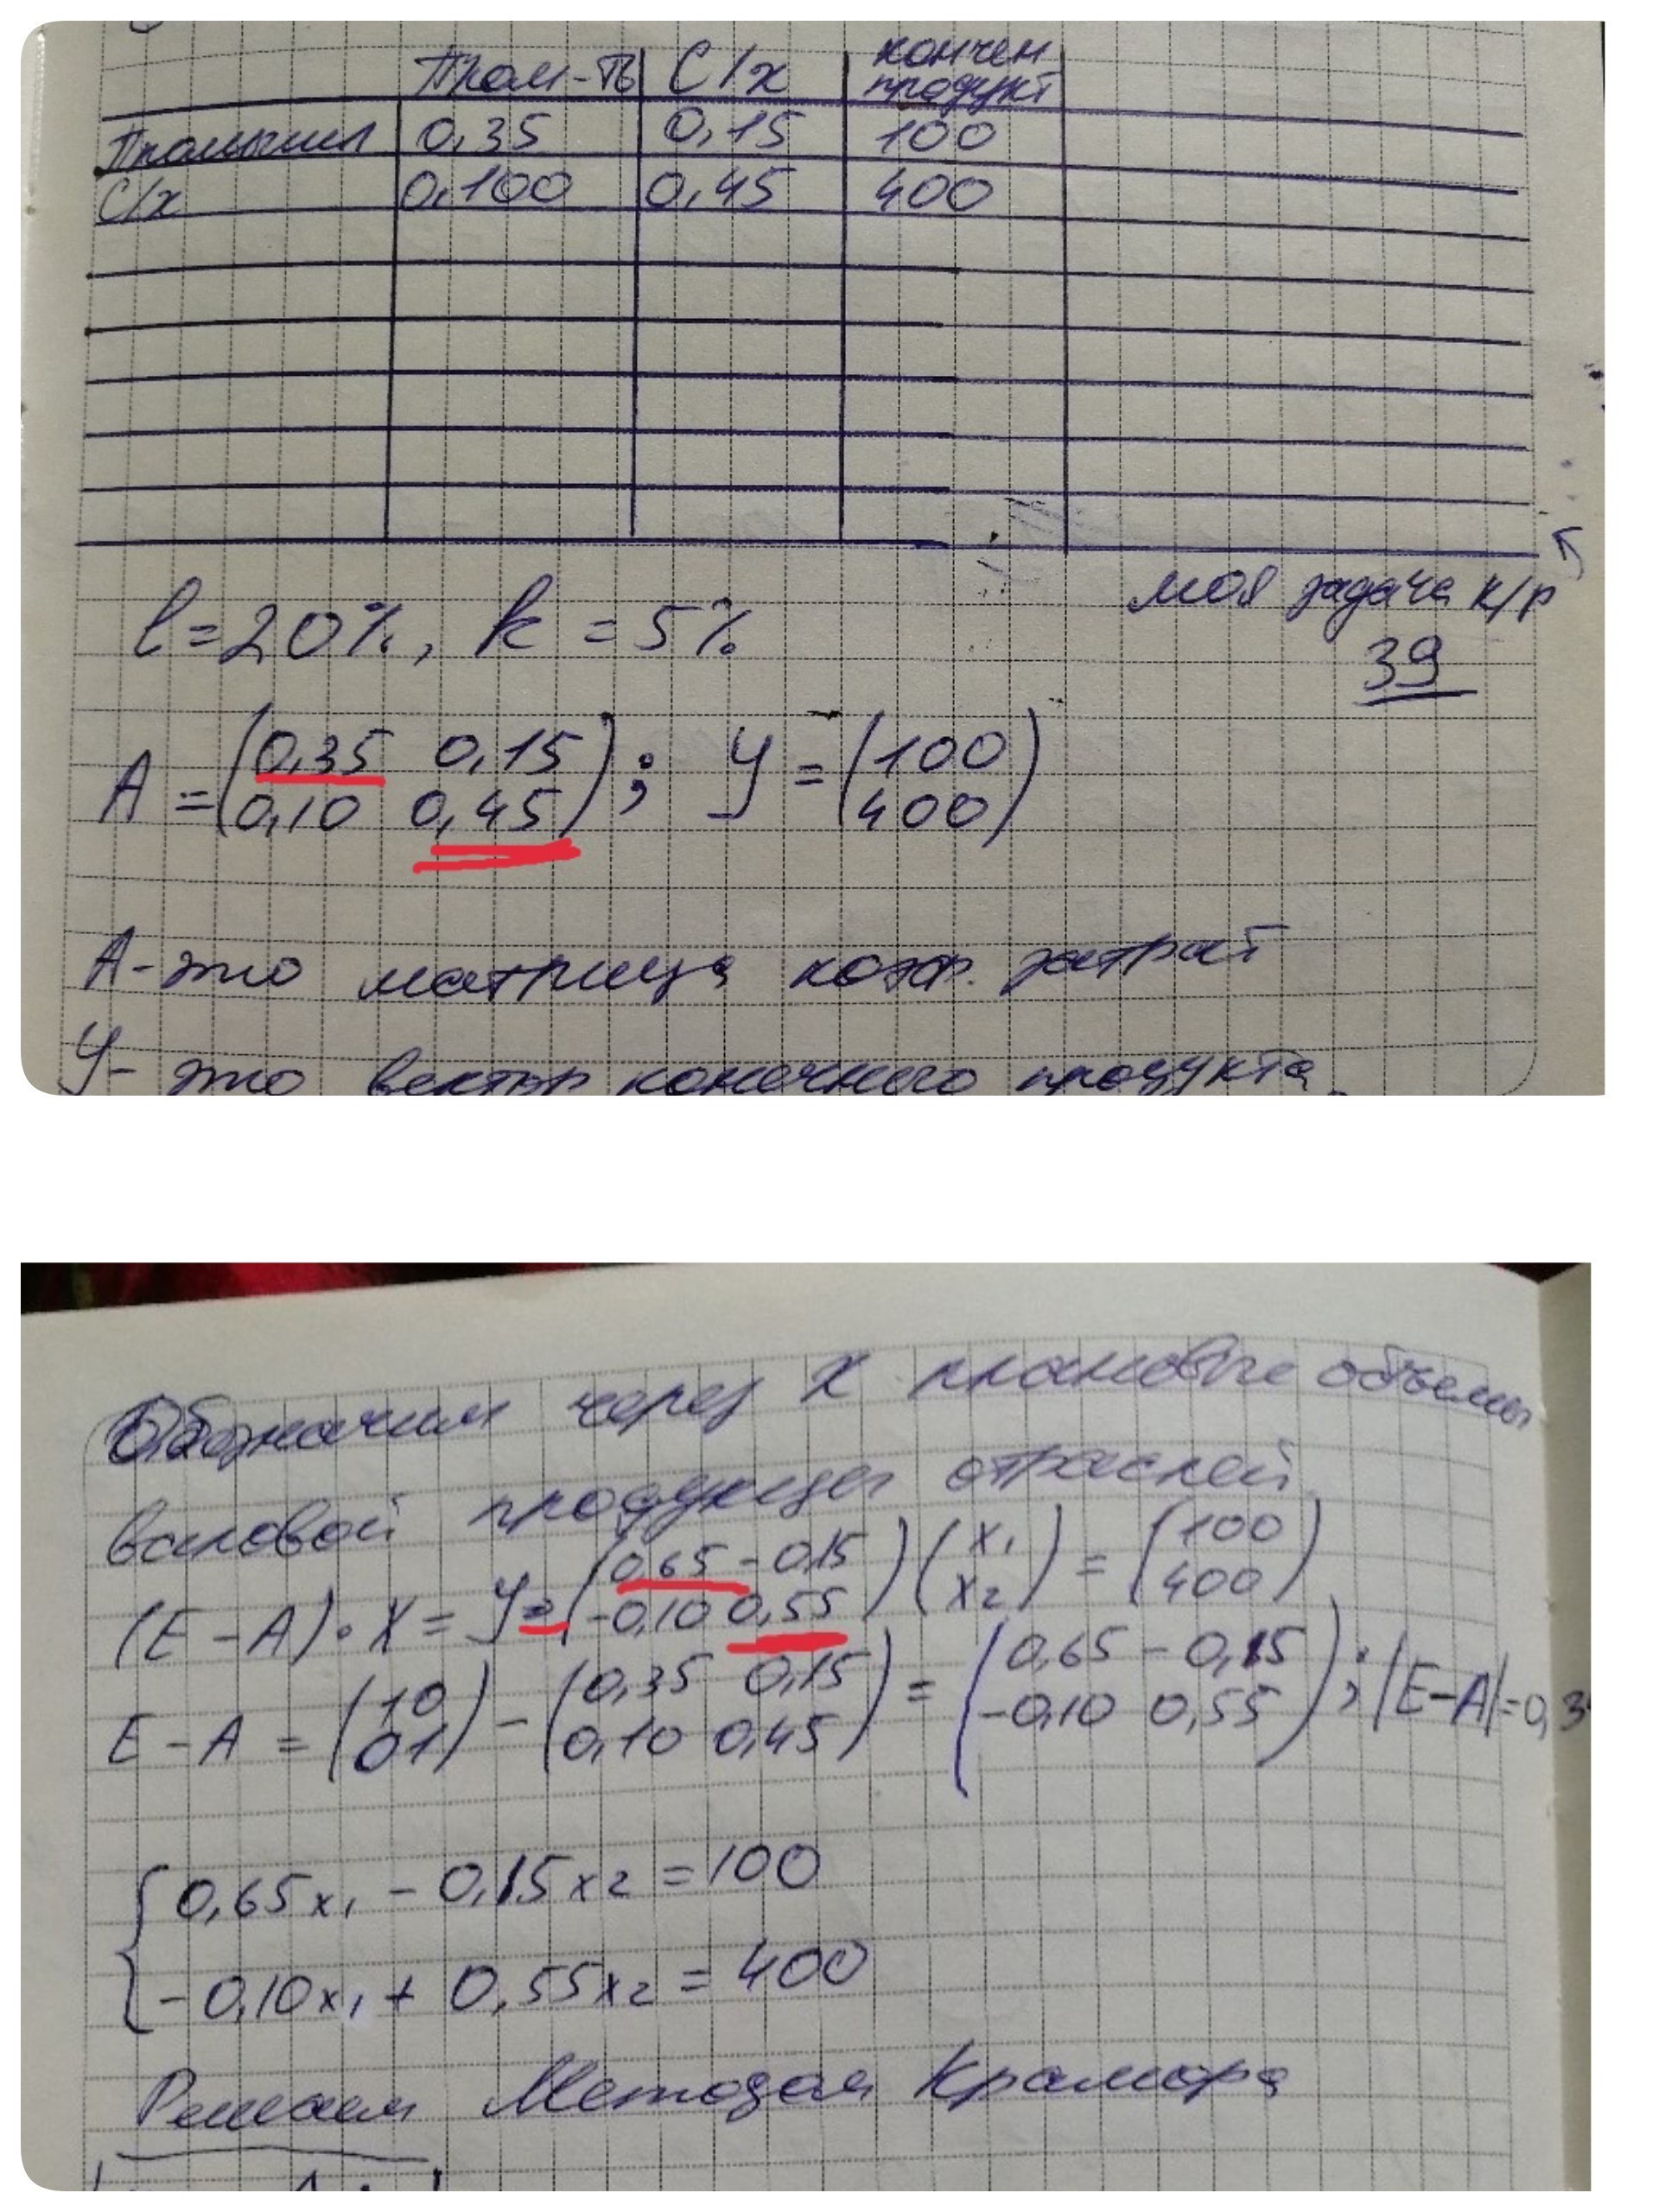 Пром-ть С/х кончен продукт
Промышл 0,35 0,15 100
С/х 0,100 0,45 400
l=20%, k=5%
моя задача к/р
39
A = (0,35 0,15
0,10 0,45); У = (100
400)
А - это матрица коэф. затрат
У - это вектор конечного продукта
Обозначим через X плановые объемы
валовой продукции отраслей
(E-A)·X = У = (0,65 -0,15
-0,10 0,55)(x1
x2) = (100
400)
E-A = (1 0
0 1) - (0,35 0,15
0,10 0,45) = (0,65 -0,15
-0,10 0,55); |E-A|=0,3
{0,65x1 - 0,15x2 = 100
-0,10x1 + 0,55x2 = 400
Решаем Методом Крамора